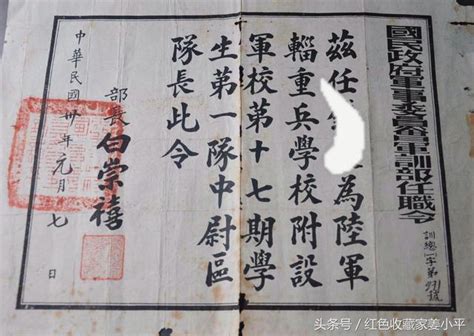 國民政府軍事委員會軍訓部任職令
訓總一字第號
茲任為陸軍
輜重兵學校附設
軍校第十七期學
生第一隊中尉區
隊長此令
部長白崇禧
中華民國卅年元月七日
头条号 / 红色收藏家姜小平